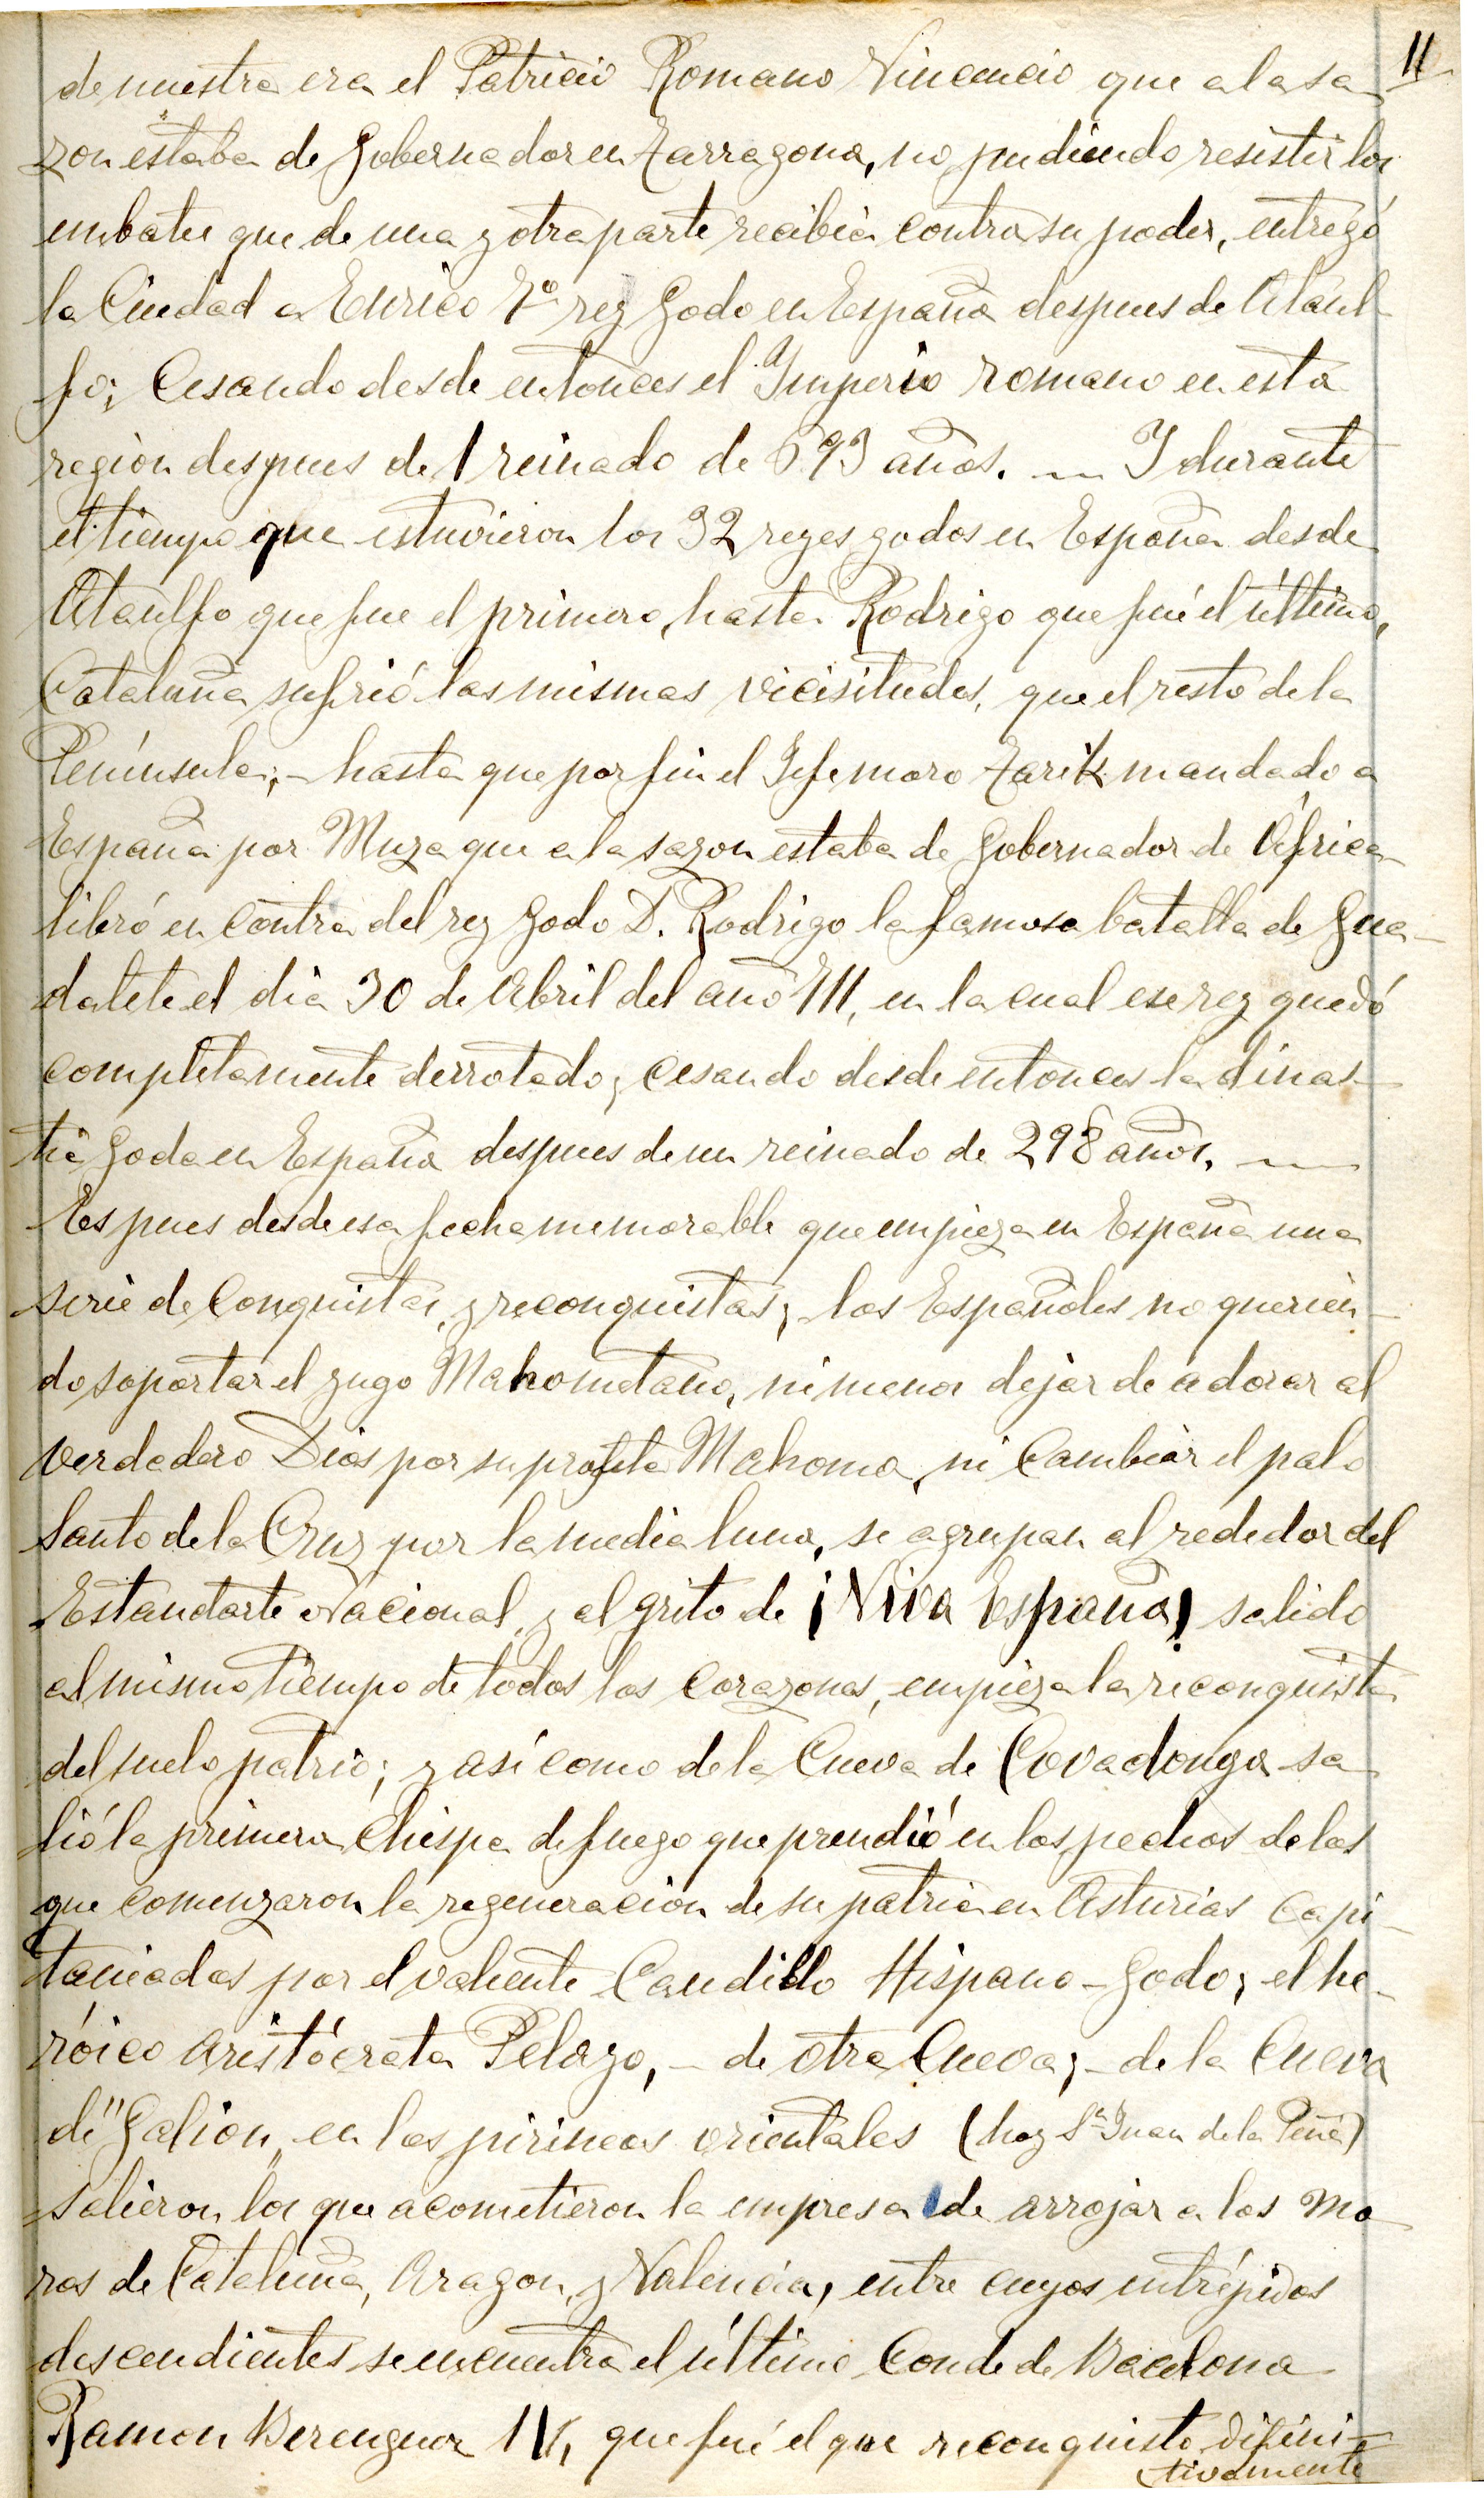 11
de nuestra era el Patricio Romano Vincencio que a la sa-
zon estaba de Gobernador en Tarragona, no pudiendo resistir los
embates que de una y otra parte recibia contra su poder, entregó
la Ciudad a Eurico 7º rey Godo en España despues de Ataul-
fo; Cesando desde entonces el Imperio romano en esta
region despues del reinado de 693 años. — Y durante
el tiempo que estuvieron los 32 reyes godos en España desde
Ataulfo que fue el primero, hasta Rodrigo que fué el último,
Cataluña sufrió las mismas vicisitudes, que el resto de la
Península; - hasta que por fin el Jefe moro Tarik mandado a
España por Muza que a la sazon estaba de Gobernador de África
libró en contra del rey Godo D. Rodrigo la famosa batalla de Gua-
dalete el dia 30 de Abril del año 711, en la cual ese rey quedó
completamente derrotado, cesando desde entonces la dinas-
tia Goda en España despues de un reinado de 298 años. —
Es pues desde esa fecha memorable que empieza en España una
serie de Conquistas, y reconquistas; los Españoles no querien-
do soportar el yugo Mahometano, ni menos dejar de adorar al
verdadero Dios por su profeta Mahoma, ni Cambiar el palo
Santo de la Cruz por la media luna, se agrupan al rededor del
Estandarte Nacional, y al grito de ¡Viva España! salido
al mismo tiempo de todos los corazones, empieza la reconquista
del suelo patrio; y asi como de la Cueva de Covadonga sa-
lió la primera Chispa de fuego que prendió en los pechos de los
que comenzaron la regeneracion de su patria en Asturias capi-
taneados por el valiente Caudillo Hispano-Godo, el he-
róico aristócrata Pelayo, - de otra Cueva; - de la Cueva
de "Galion" en los pirineos orientales (hoy Sn Juan de la Peña)
salieron los que acometieron la empresa de arrojar a los mo-
ros de Cataluña, Aragon, y Valencia, entre cuyos intrépidos
descendientes se encuentra el último Conde de Bacelona
Ramon Berenguer IV, que fué el que reconquisto difini-
tivamente